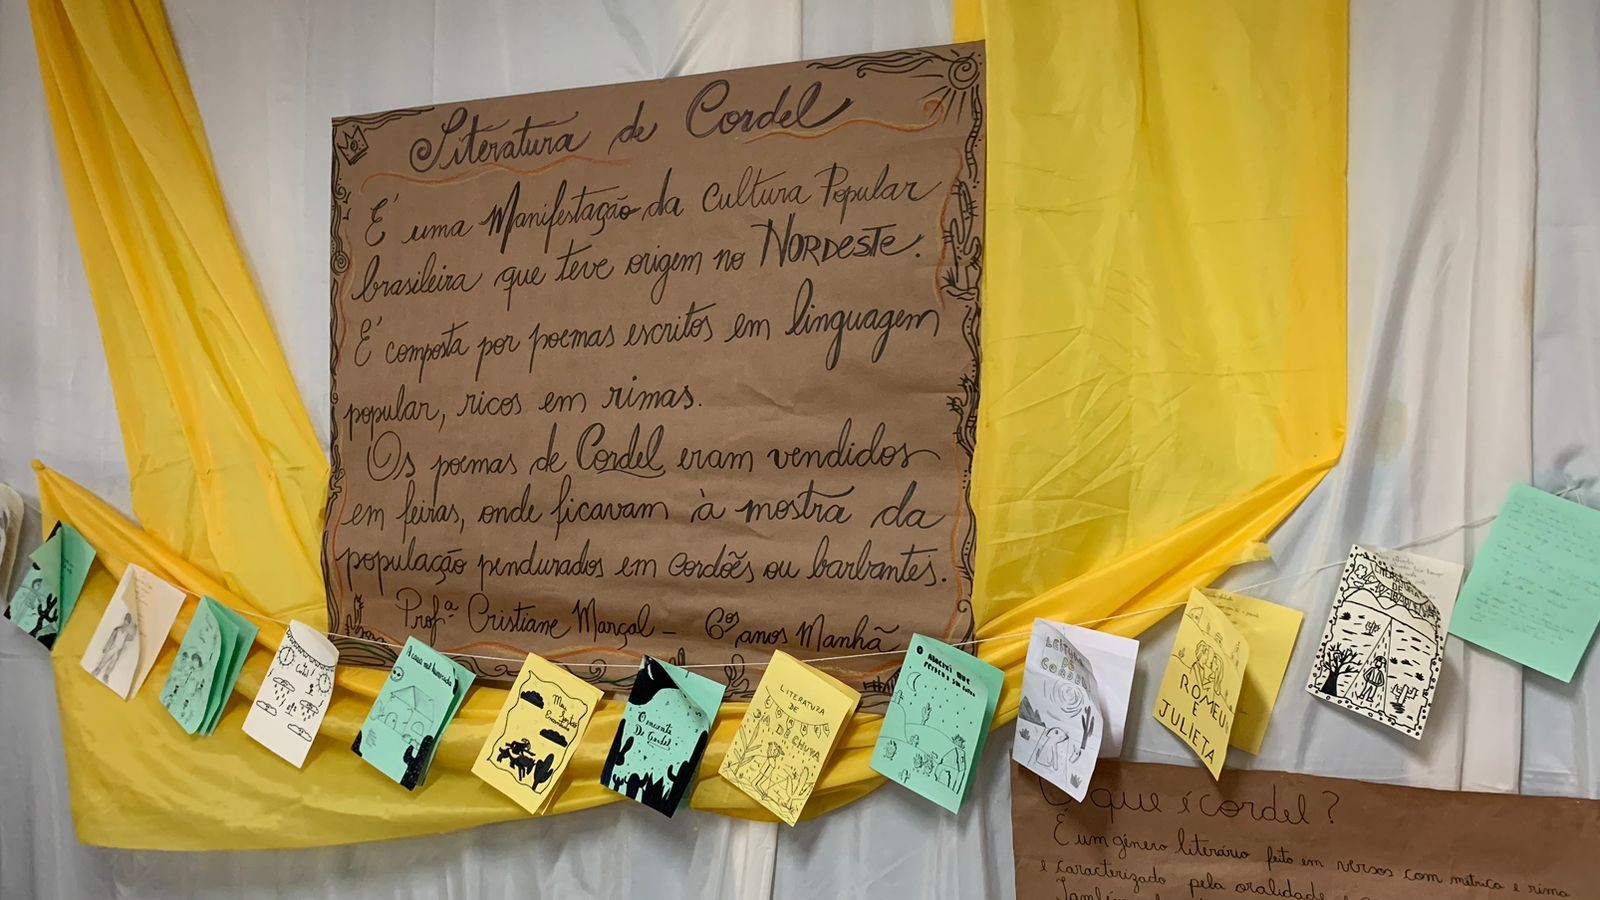 Literatura de Cordel
É uma Manifestação da Cultura Popular
brasileira que teve origem no NORDESTE.
É composta por poemas escritos em linguagem
popular, ricos em rimas.
Os poemas de Cordel eram vendidos
em feiras, onde ficavam à mostra da
população pendurados em cordões ou barbantes.
Profª Cristiane Marçal - 6ºs anos Manhã
A casa mal
Meu
Encantado
De Cordel
LITERATURA
DE
CORDEL
DE CHUVA
O
QUE
LEITURA
DE
CORDEL
ROMEU
E
JULIETA
LITERATURA
DE
O que é cordel?
É um gênero literário feito em versos com métrica e rima
e caracterizado pela oralidade
Também